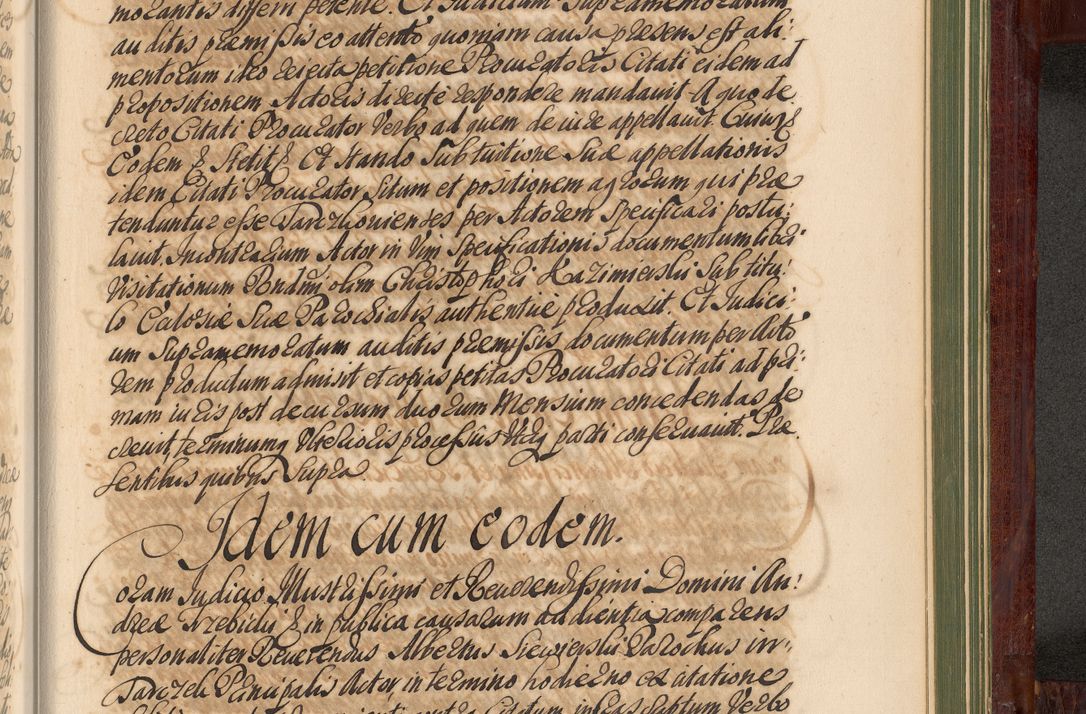 morantis differri petente. Et Judicium Supramemoratum
auditis præmissis eo attento quoniam causa præsens est ali:
mentorum ideo reiecta petitione Procuratoris Citati eidem ad
propositionem Actoris directe respondere mandavit A quo de:
creto Citati Procurator Verbo ad quem de iure appellavit Cuius &
Eodem & stetit & Et stando sub tuitione suæ appellationis
idem Citati Procurator Situm et positionem agrorum qui præ
tenduntur esse Tarczkovienses per Actorem specificari postu:
lavit. In contrarium Actor in Vim Specificationis documentum libri
Visitationum Rndmi olim Christophori Kazimierski sub titu:
lo Eclesiæ suæ Parochialis authentice produxit. Et Judici:
um Supramemoratum auditis præmissis documentum per Acto
rem productum admisit et copias petitas Procuratori Citati ad pri
mam iuris post decursum duorum Mensium concedendas de
crevit, terminumq Ulterioris processus Utrq parti conservavit. Præ
sentibus quibus Supra.
Idem cum eodem.
Coram Judicio Illustrissimi et Reverendissimi Domini An:
dreæ Trzebicki & in publica causarum audientia comparens
personaliter Reverendus Albertus Siewierski Parochus in
Tarczek Principalis Actor in termino hodierno ex citatione